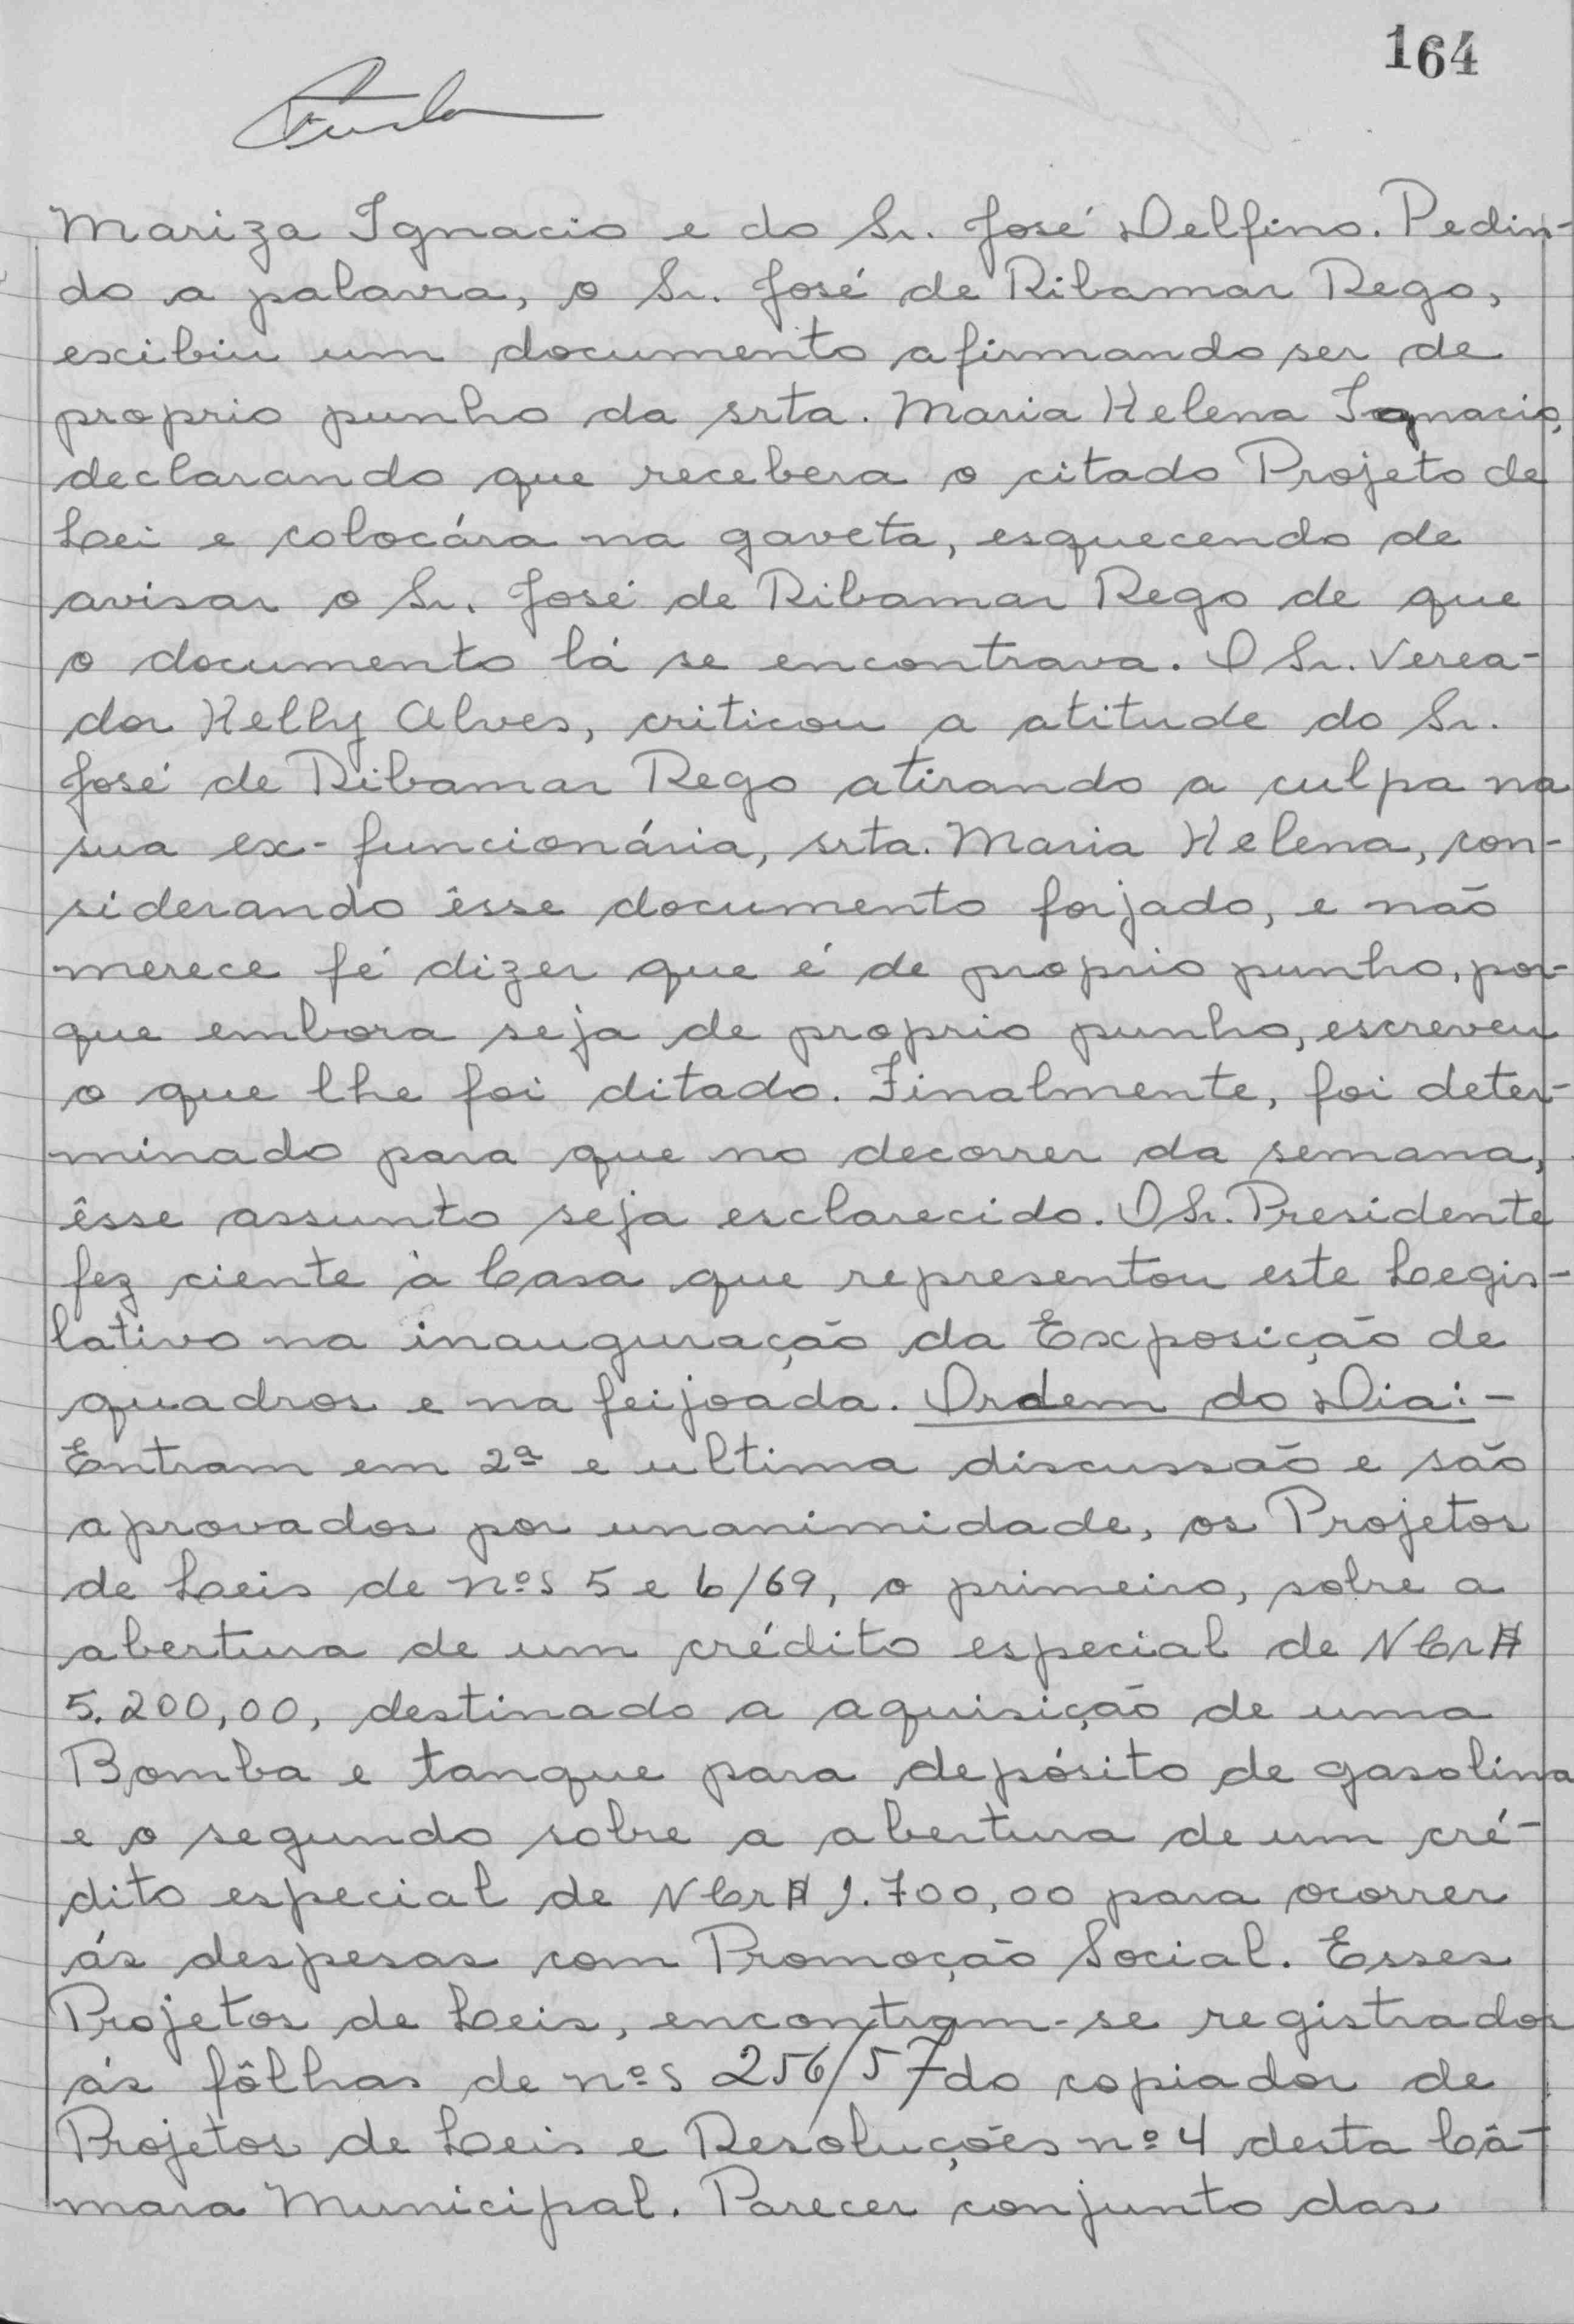 164
Mariza Ignacio e do Sr. José Delfino. Pedin-
do a palavra, o Sr. José de Ribamar Rego,
exibiu um documento afirmando ser de
proprio punho da srta. Maria Helena Ignacio,
declarando que recebera o citado Projeto de
Lei e colocára na gaveta, esquecendo de
avisar o Sr. José de Ribamar Rego de que
o documento lá se encontrava. O Sr. Verea-
dor Kelly Alves, criticou a atitude do Sr.
José de Ribamar Rego atirando a culpa na
sua ex-funcionária, srta. Maria Helena, con-
siderando êsse documento forjado, e não
merece fé dizer que é de proprio punho, por-
que embora seja de proprio punho, escreveu
o que lhe foi ditado. Finalmente, foi deter-
minado para que no decorrer da semana,
êsse assunto seja esclarecido. O Sr. Presidente
fez ciente à Casa que representou este Legis-
lativo na inauguração da Exposição de
quadros e na feijoada. Ordem do Dia:-
Entram em 2ª e ultima discussão e são
aprovados por unanimidade, os Projetos
de Leis de nºs 5 e 6/69, o primeiro, sobre a
abertura de um crédito especial de NCr$
5.200,00, destinado a aquisição de uma
Bomba e tanque para depósito de gasolina
e o segundo sobre a abertura de um cré-
dito especial de NCr$ 1.700,00 para ocorrer
ás despesas com Promoção Social. Esses
Projetos de Leis, encontram-se registrados
ás fôlhas de nºs 256/57 do copiador de
Projetos de Leis e Resoluções nº 4 desta Câ-
mara Municipal. Parecer conjunto das